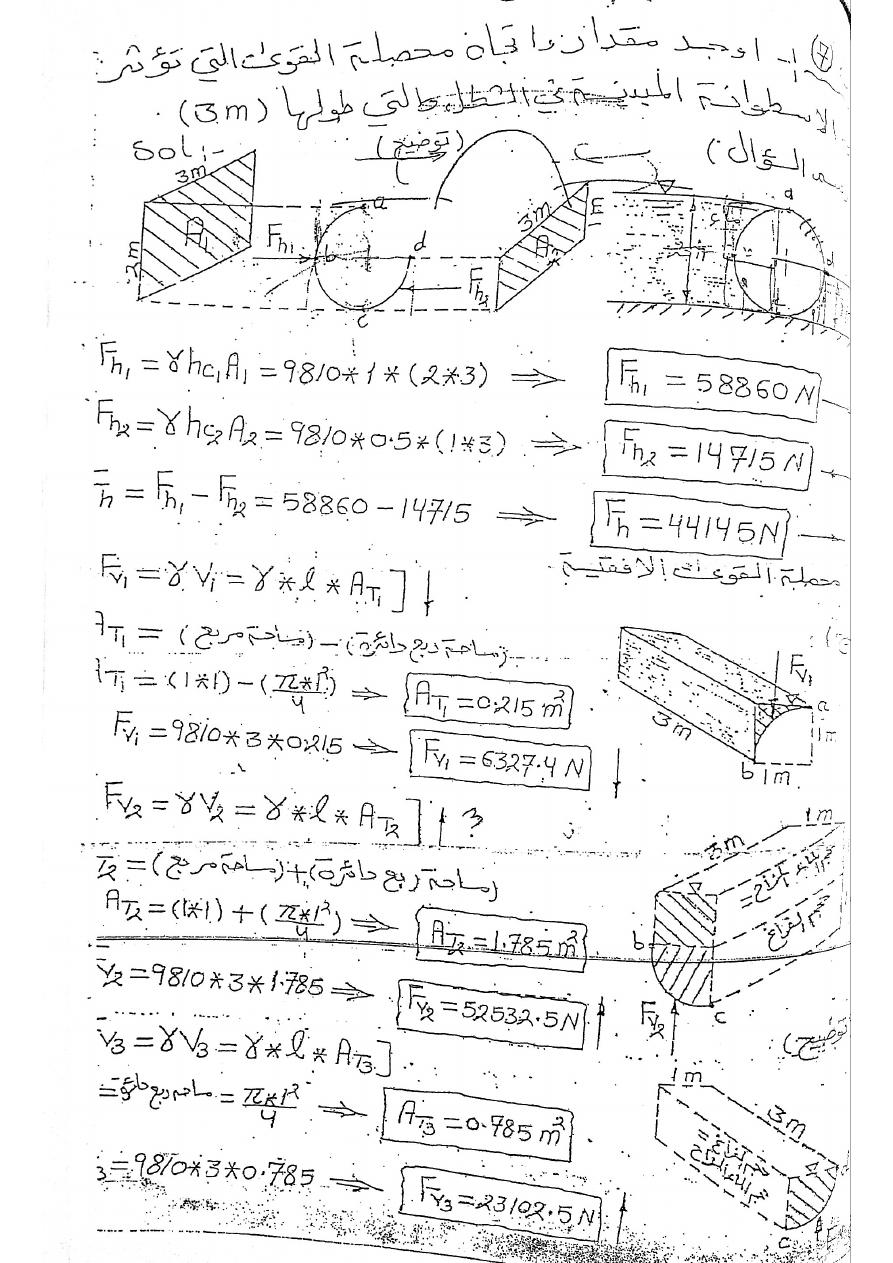 (7) 1- اوجد مقدار واتجاه محصلة القوى التي تؤثر
الاسطوانة المبينة في الشكل والتي طولها (3m).
السؤال) (توضيح) Sol:-
3m
2m A₁ Fh₁ a b c d Fh₂ 3m A₂ a
Fh₁ = γhc₁A₁ = 9810*1*(2*3) ⟹ Fh₁ = 58860 N
Fh₂ = γhc₂A₂ = 9810*0.5*(1*3) ⟹ Fh₂ = 14715 N
h = Fh₁ - Fh₂ = 58860 - 14715 ⟹ Fh = 44145 N
محصلة القوى الافقية
Fv₁ = γV₁ = γ*l*AT₁] ↓
T₁ = (مساحة مربع) - (مساحة ربع دائرة)
T₁ = (1*1) - (π*1²/4) ⟹ AT₁ = 0.215 m²
Fv₁ = 9810*3*0.215 ⟹ Fv₁ = 6327.4 N ↓
Fv₁ a 1m 3m b 1m
Fv₂ = γV₂ = γ*l*AT₂] ↑ ?
T₂ = (مساحة مربع) + (مساحة ربع دائرة)
AT₂ = (1*1) + (π*1²/4) ⟹ AT₂ = 1.785 m²
v₂ = 9810*3*1.785 ⟹ Fv₂ = 52532.5 N ↑
1m 3m b Fv₂ c
حجم الفراغ
v₃ = γV₃ = γ*l*AT₃]
توضيح)
= مساحة ربع دائرة = π*1²/4 ⟹ AT₃ = 0.785 m²
3 = 9810*3*0.785 ⟹ Fv₃ = 23102.5 N ↑
1m 3m c